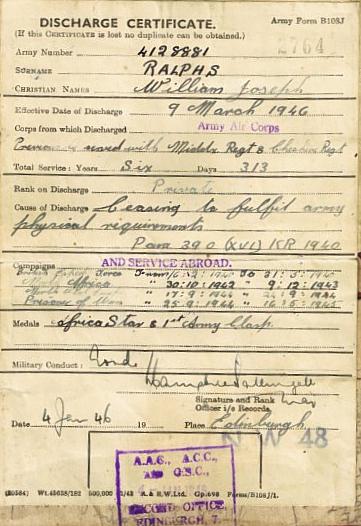 DISCHARGE CERTIFICATE. Army Form B108J
(If this CERTIFICATE is lost no duplicate can be obtained.) 2764
Army Number 4128881
SURNAME RALPHS
CHRISTIAN NAMES William Joseph
Effective Date of Discharge 9 March 1946
Corps from which Discharged Army Air Corps
Previously served with Middlx Regt & Cheshire Regt
Total Service: Years Six Days 313
Rank on Discharge Private
Cause of Discharge Ceasing to fulfil army
physical requirements
Para 390 (XVI) KR 1940
AND SERVICE ABROAD.
Campaigns
British Force From
Africa " 30.10.1942 " 9.12.1943
" 17.9.1944 " 24.9.1944
Prisoner of War " 25.9.1944 " 16.5.1945
Medals Africa Star & 1st Army Clasp
Military Conduct:
Signature and Rank
Officer i/c Records.
Date 4 Jan 46 19 Place Edinburgh
NW 48
A.A.C., A.C.C.,
AND G.S.C.,
RECORD OFFICE,
EDINBURGH, 7.
(20584) Wt.45638/182 500,000 1/43 A. & E.W.Ltd. Gp.698 Forms/B108J/1.